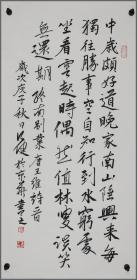 中歲頗好道晚家南山陲興來每
獨往勝事空自知行到水窮處
坐看雲起時偶然值林叟談笑
無還期 終南別業 唐王維詩一首
歲次庚子秋日